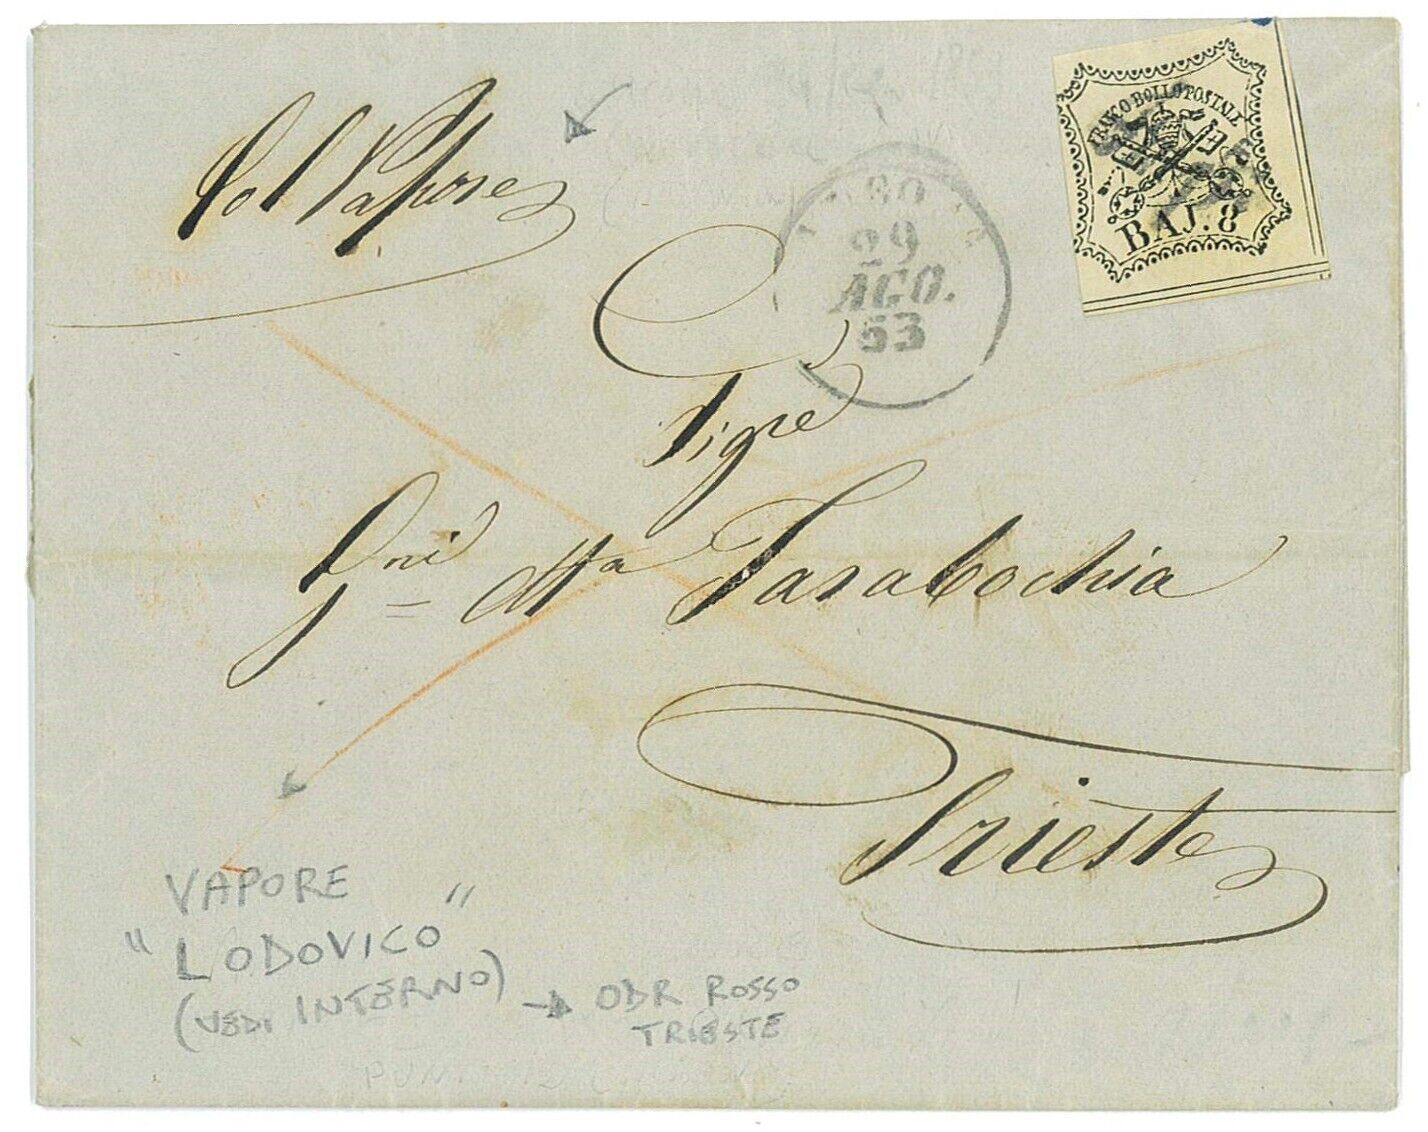 Col Vapore
FRANCO BOLLO POSTALE
BAJ. 8
29
AGO.
53
Sigre
Gni Mta Tarabochia
Trieste
VAPORE
"LODOVICO"
(VEDI INTERNO) → ODR ROSSO
TRIESTE